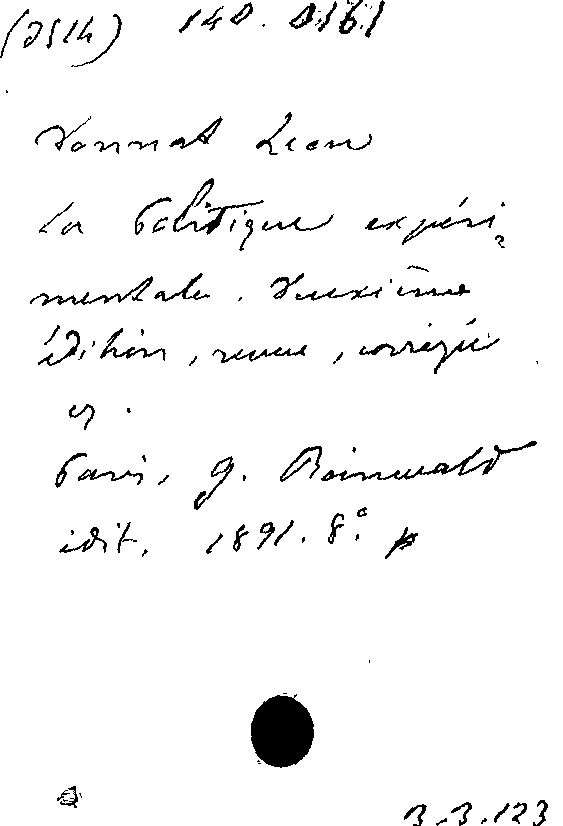 (2514) 140. 0161
Donnat Leon
La Politique expéri-
mentale. Deuxième
édition, revue, corrigée
et.
Paris, G. Reinwald
edit. 1891. 8º. p
3.3.123